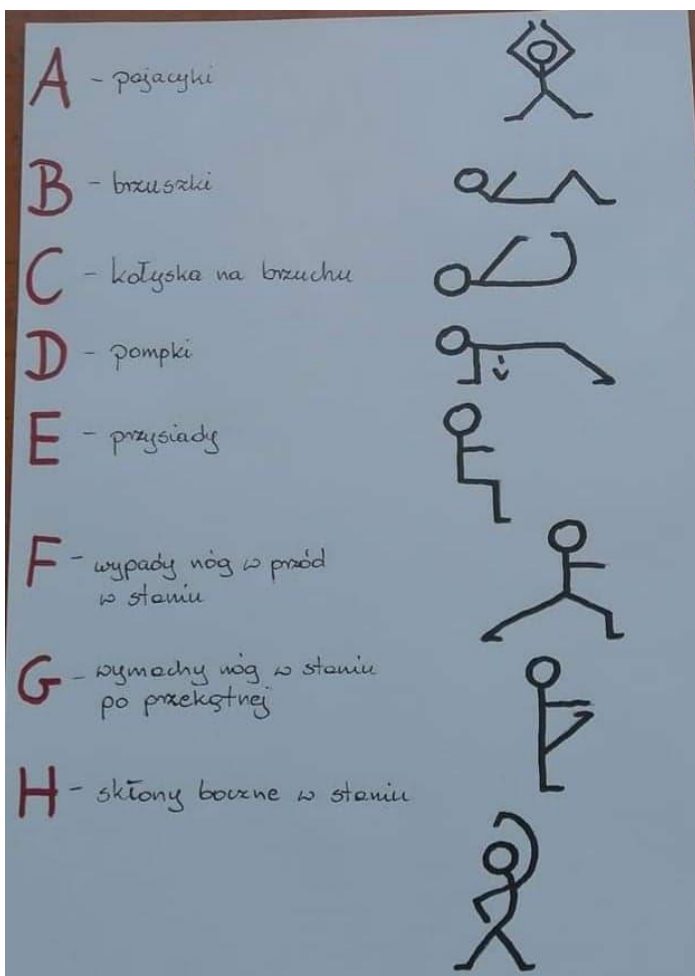 A - pajacyki
B - brzuszki
C - kołyska na brzuchu
D - pompki
E - przysiady
F - wypady nóg w przód
w staniu
G - wymachy nóg w staniu
po przekątnej
H - skłony boczne w staniu